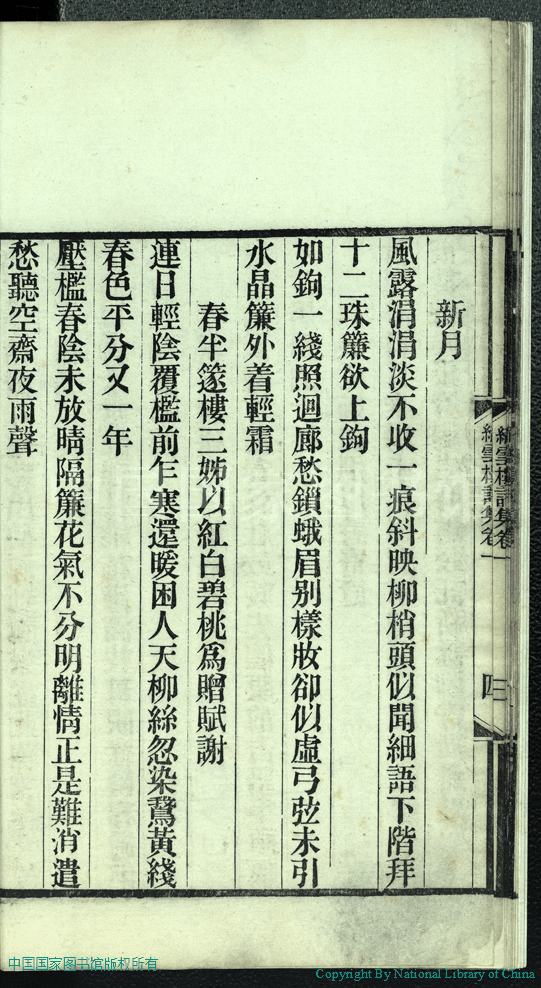 新月
風露涓涓淡不收一痕斜映柳梢頭似聞細語下階拜
十二珠簾欲上鉤
如鉤一綫照迴廊愁鎖蛾眉別樣妝卻似虛弓弦未引
水晶簾外着輕霜
春半篴樓三姊以紅白碧桃為贈賦謝
連日輕陰覆檻前乍寒還暖困人天柳絲忽染鵞黃綫
春色平分又一年
壓檻春陰未放晴隔簾花氣不分明離情正是難消遣
愁聽空齋夜雨聲
雲樓詩集卷一
四
中国国家图书馆版权所有
Copyright By National Library of China